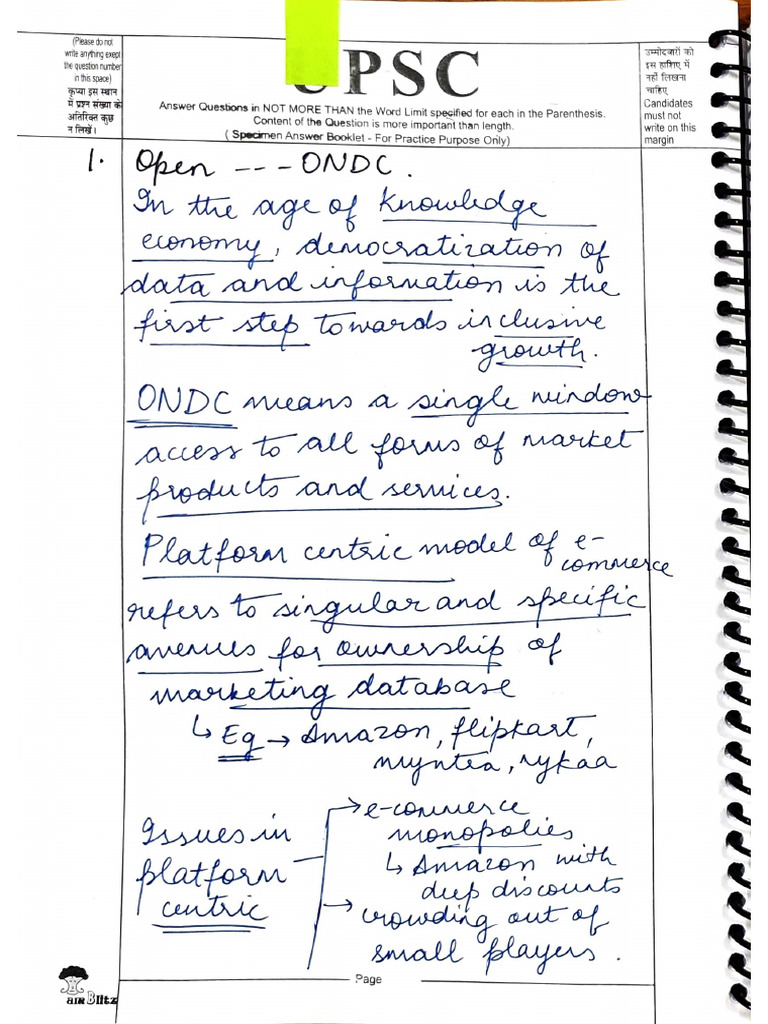 (Please do not
write anything exept
the question number
in this space)
कृप्या इस स्थान
में प्रश्न संख्या के
अतिरिक्त कुछ
न लिखें।
UPSC
Answer Questions in NOT MORE THAN the Word Limit specified for each in the Parenthesis.
Content of the Question is more important than length.
( Specimen Answer Booklet - For Practice Purpose Only)
उम्मीदवारों को
इस हाशिए में
नहीं लिखना
चाहिए
Candidates
must not
write on this
margin
1. Open --- ONDC.
In the age of knowledge
economy, democratization of
data and information is the
first step towards inclusive
growth.
ONDC means a single window
access to all forms of market
products and services.
Platform centric model of e-
commerce
refers to singular and specific
avenues for ownership of
marketing database
↳ Eg → Amazon, flipkart,
myntra, nykaa
Issues in
platform
centric
→ e-commerce
monopolies
↳ Amazon with
deep discounts
→ crowding out of
small players.
Page
aim Blitz